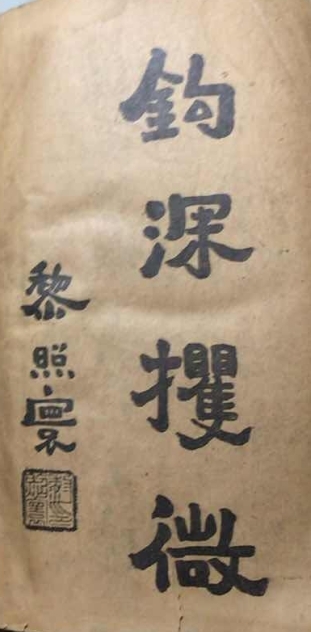 鈎深攫微
黎照寰